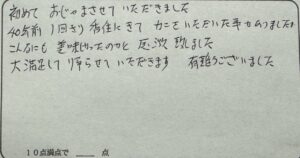 初めて おじゃまさせて いただきました
40年前 1回きり 香住にきて カニをいただいた事がありましたが
こんなにも 美味しかったのかと 反省 致しました
大満足して 帰らせて いただきます 有難うございました
10点満点で ＿＿ 点